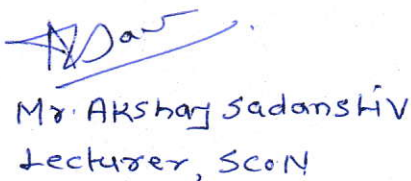 Mr. Akshay Sadanshiv
Lecturer, SCoN